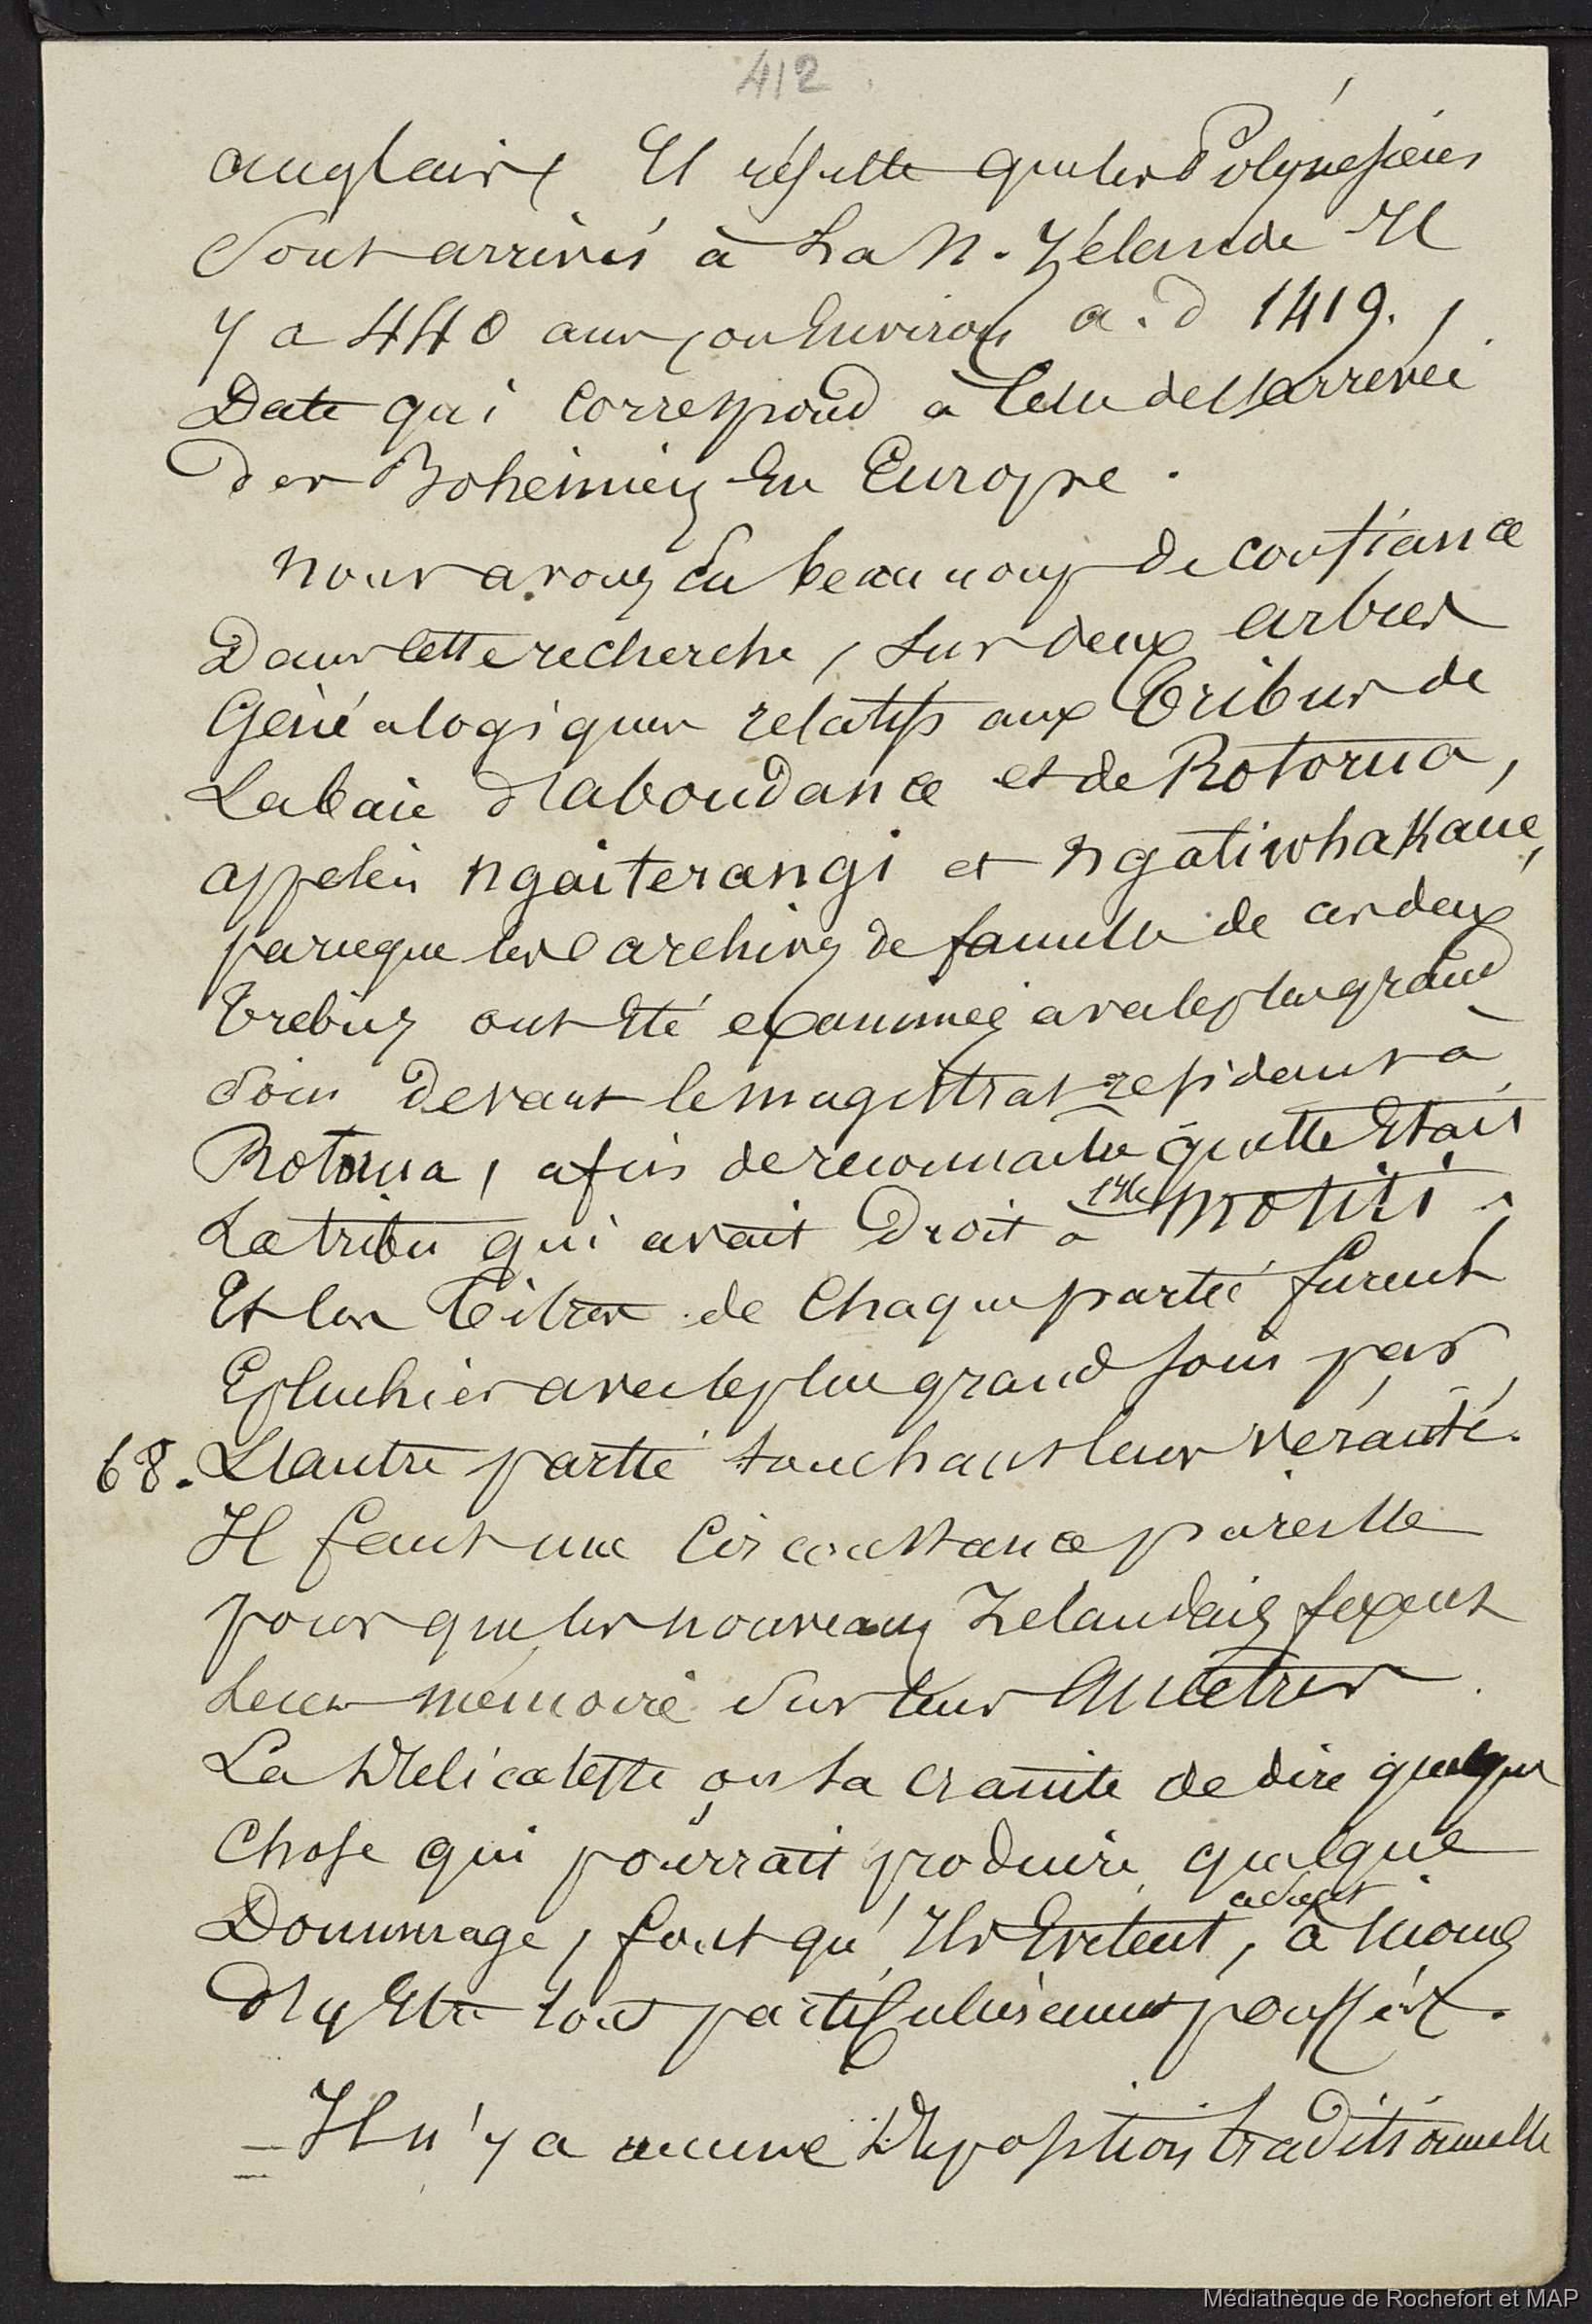 412
anglaises Il résulte que les Polynésiens
Sont arrivés à La N. Zélande Il
y a 440 ans, ou Environ a. d 1419.,
Date qui correspond à Celle de l'arrivée
des Bohémiens En Europe.
nous avons Eu beaucoup de confiance
Dans cette recherche, sur deux arbres
Généalogiques relatifs aux Tribus de
La baie d'abondance et de Rotorua,
appelés ngaiterangi et ngatiwhakaue,
parceque les archives de famille de ces deux
Trebus ont Eté examinées avec le plus grand
Soin devant le magistrat résidant à
Rotorua, afin de reconnaitre quelle Etait
La tribu qui avait Droit à l'Ile motiti ;
Et les Titres de Chaque partie furent
Epluchés avec le plus grand soin par
68. L'autre partie touchant leur véracité.
Il faut une Circonstance pareille
pour que les nouveaux Zelandais fixent
Leur mémoire Sur leurs Ancêtres.
La Délicatesse ou la crainte de dire quelque
Chose qui pourrait produire quelque
Dommage, font qu'Ils Evitent, à moins
d'y Etre tout particulièrement poussés.
– Il n'y a aucune Disposition traditionnelle
Médiathèque de Rochefort et MAP